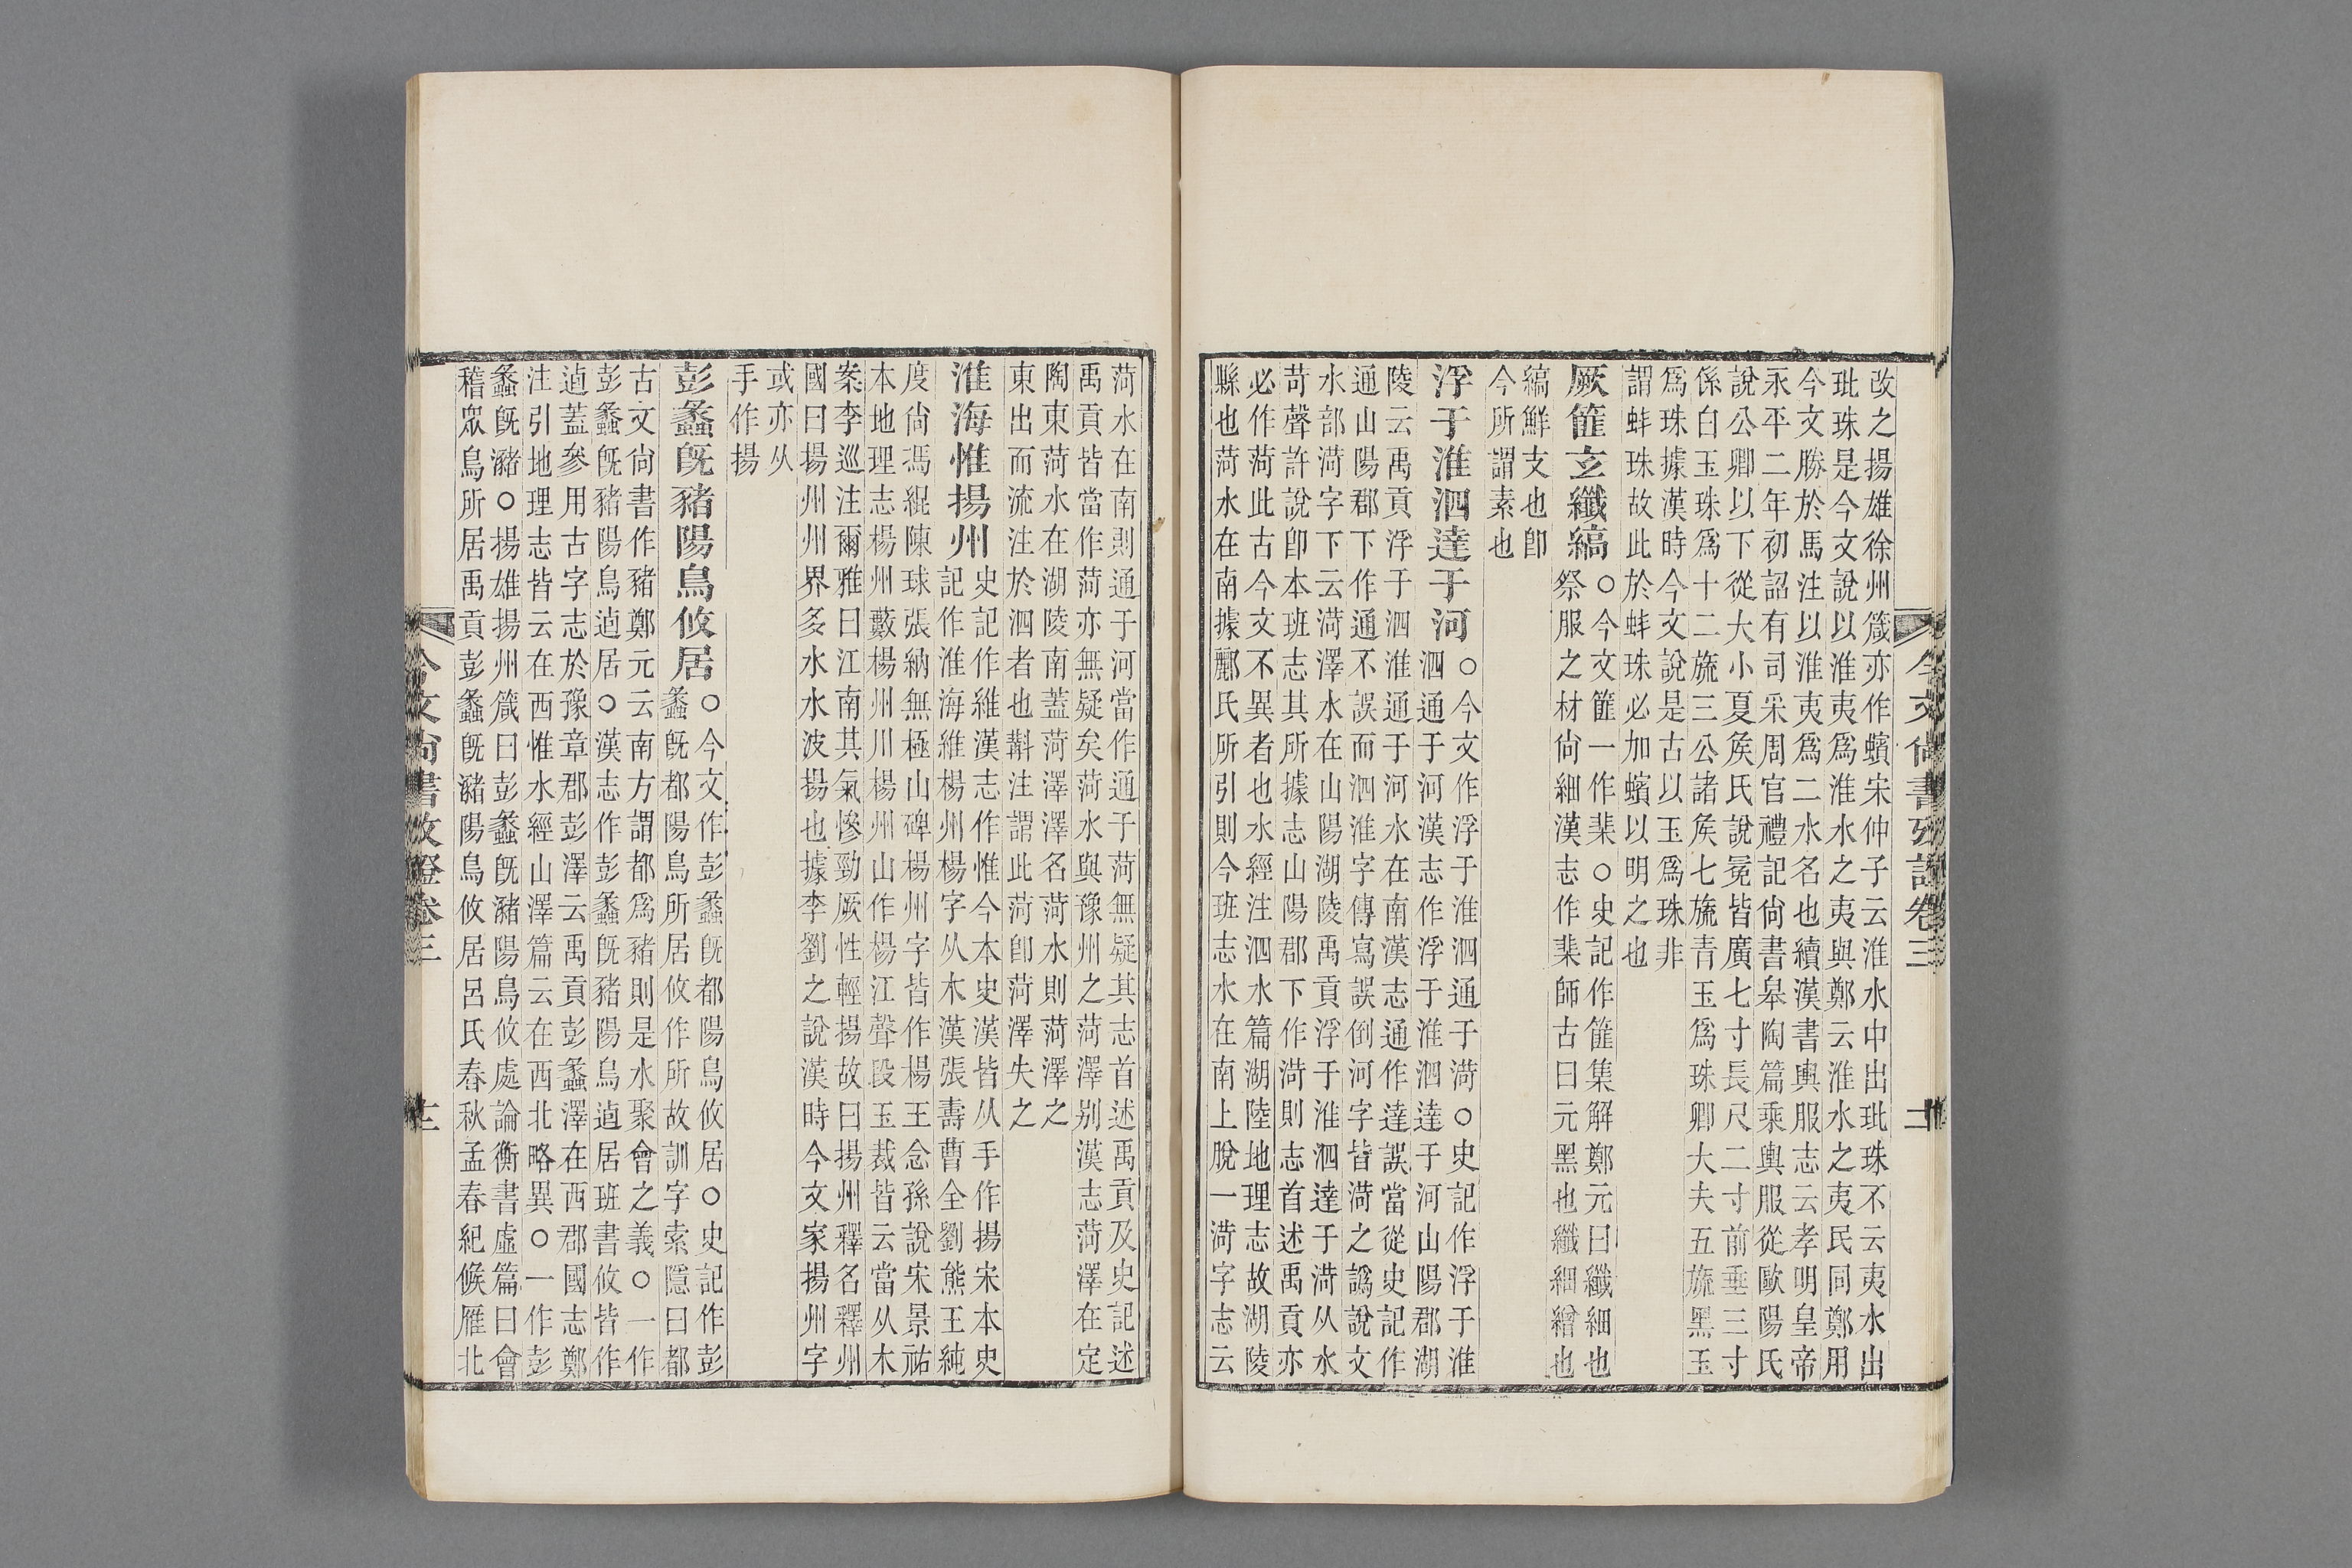 改之揚雄徐州箴亦作蠙宋仲子云淮水中出玭珠不云夷水出
玭珠是今文說以淮夷爲淮水之夷與鄭云淮水之夷民同鄭用
今文勝於馬注以淮夷爲二水名也續漢書輿服志云孝明皇帝
永平二年初詔有司采周官禮記尙書皋陶篇乘輿服從歐陽氏
說公卿以下從大小夏矦氏說冕皆廣七寸長尺二寸前垂三寸
係白玉珠爲十二旒三公諸矦七旒青玉爲珠卿大夫五旒黑玉
爲珠據漢時今文說是古以玉爲珠非
謂蚌珠故此於蚌珠必加蠙以明之也
厥篚玄纖縞
○今文篚一作棐○史記作篚集解鄭元曰纖細也
祭服之材尙細漢志作棐師古曰元黑也纖細繒也
縞鮮支也卽
今所謂素也
浮于淮泗達于河
○今文作浮于淮泗通于菏○史記作浮于淮
泗通于河漢志作浮于淮泗達于河山陽郡湖
陵云禹貢浮于泗淮通于河水在南漢志通作達誤當從史記作
通山陽郡下作通不誤而泗淮字傳寫誤倒河字皆菏之譌說文
水部菏字下云菏澤水在山陽湖陵禹貢浮于淮泗達于菏从水
苛聲許說卽本班志其所據志山陽郡下作菏則志首述禹貢亦
必作菏此古今文不異者也水經注泗水篇湖陸地理志故湖陵
縣也菏水在南據酈氏所引則今班志水在南上脫一菏字志云
今文尙書攷證卷三
菏水在南則通于河當作通于菏無疑其志首述禹貢及史記述
禹貢皆當作菏亦無疑矣菏水與豫州之菏澤别漢志菏澤在定
陶東菏水在湖陵南蓋菏澤名菏水則菏澤之
東出而流注於泗者也斠注謂此菏卽菏澤失之
淮海惟揚州
史記作維漢志作惟今本史漢皆从手作揚宋本史
記作淮海維楊州楊字从木漢張壽曹全劉熊王純
度尙馮緄陳球張納無極山碑楊州字皆作楊王念孫說宋景祐
本地理志楊州藪楊州川楊州山作楊江聲段玉裁皆云當从木
案李巡注爾雅曰江南其氣慘勁厥性輕揚故曰揚州釋名釋州
國曰揚州州界多水水波揚也據李劉之說漢時今文家揚州字
或亦从
手作揚
彭蠡旣豬陽鳥攸居
○今文作彭蠡旣都陽鳥攸居○史記作彭
蠡旣都陽鳥所居攸作所故訓字索隱曰都
古文尙書作豬鄭元云南方謂都爲豬則是水聚會之義○一作
彭蠡旣豬陽鳥逌居○漢志作彭蠡旣豬陽鳥逌居班書攸皆作
逌蓋參用古字志於豫章郡彭澤云禹貢彭蠡澤在西郡國志鄭
注引地理志皆云在西惟水經山澤篇云在西北略異○一作彭
蠡旣瀦○揚雄揚州箴曰彭蠡旣瀦陽鳥攸處論衡書虛篇曰會
稽眾鳥所居禹貢彭蠡旣瀦陽鳥攸居呂氏春秋孟春紀候雁北
今文尙書攷證卷三